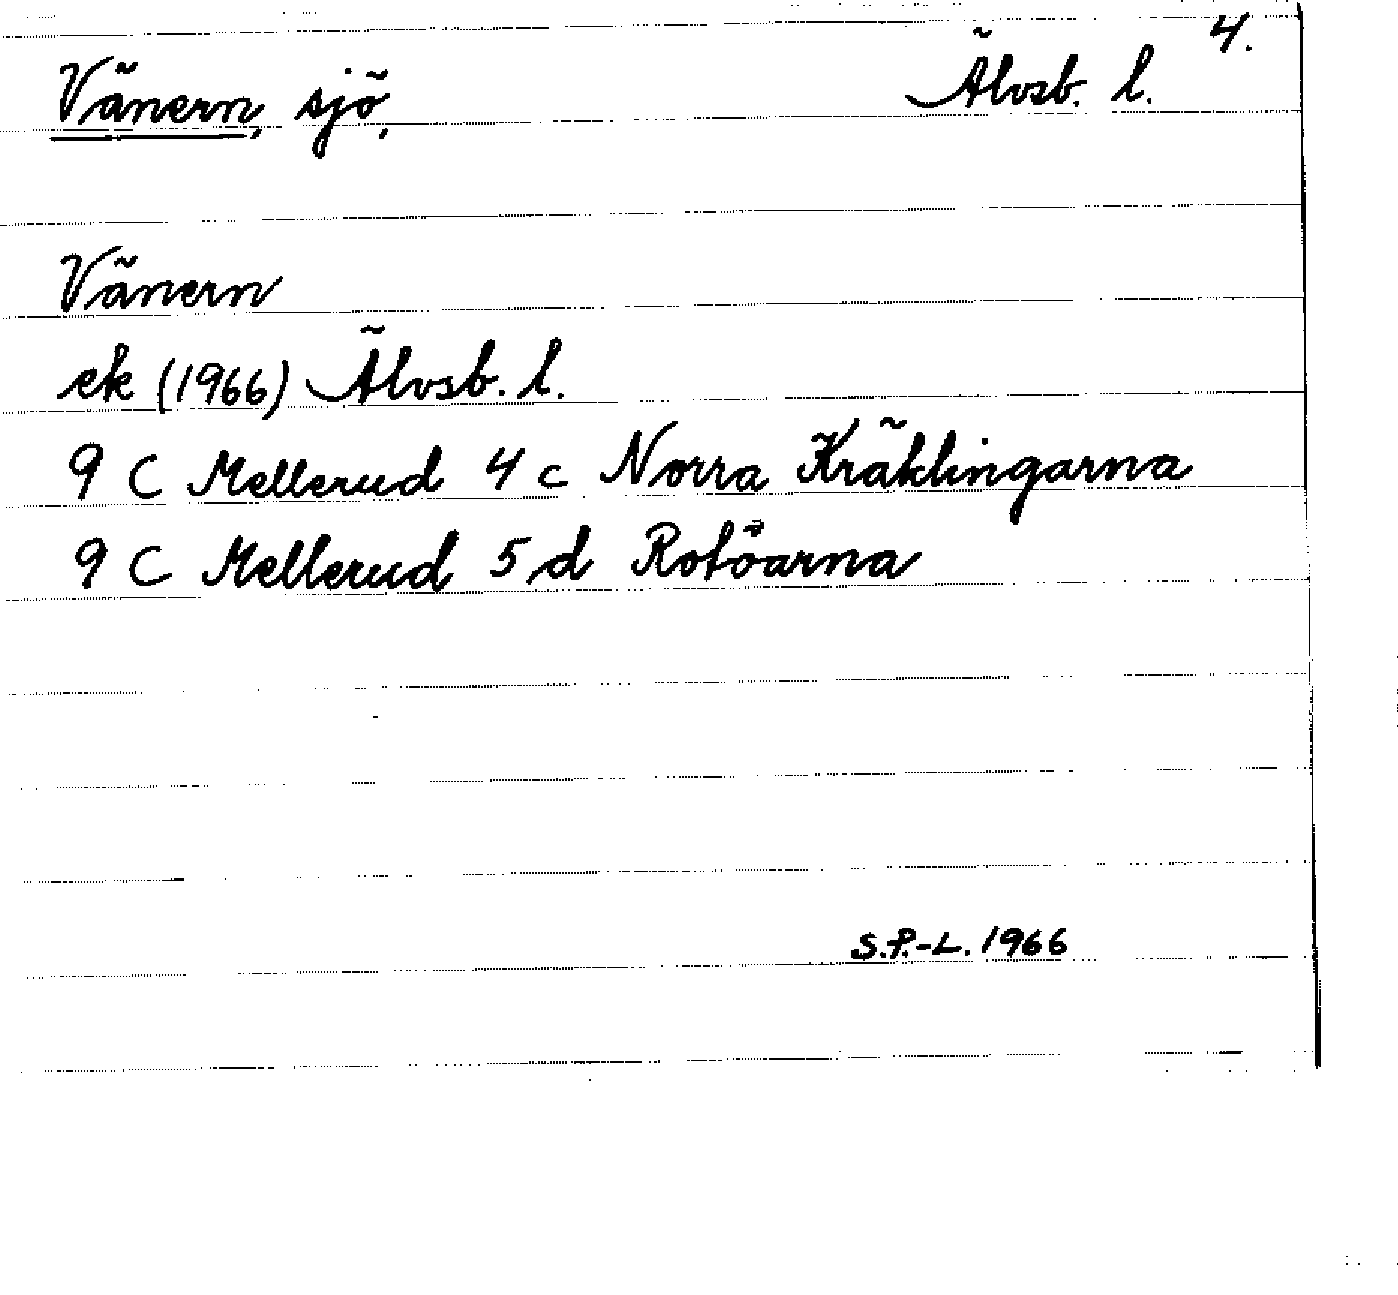 4.
Vänern, sjö, Älvsb. l.
Vänern
ek (1966) Älvsb. l.
9 C Mellerud 4 c Norra Kräklingarna
9 C Mellerud 5 d Rotöarna
S.P.-L. 1966